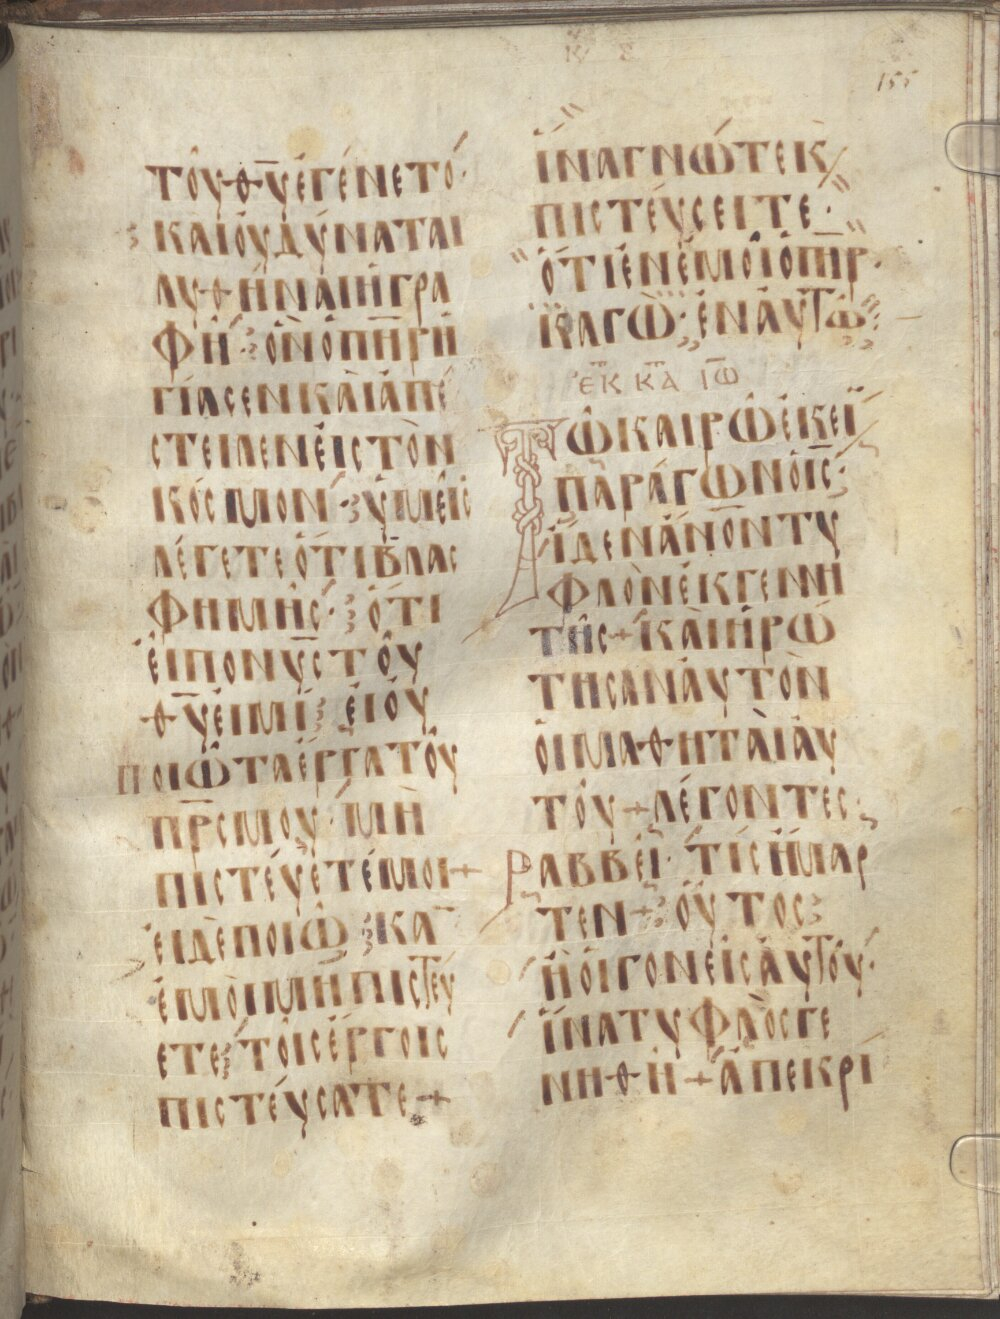 155
ΤΟΥ Θ̅Υ̅ ἘΓΈΝΕΤΟ·
ΚΑΙ ΟΥ ΔΥΝΑΤΑΙ
ΛΥΘΗΝΑΙ Η ΓΡΑ
ΦΗ· ΟΝ Ο Π̅Η̅Ρ̅ Η
ΓΙΑΣΕΝ ΚΑΙ ΑΠΕ
ΣΤΕΙΛΕΝ ΕΙΣ ΤΟΝ
ΚΟΣΜΟΝ· ΥΜΕΙΣ
ΛΕΓΕΤΕ ΟΤΙ ΒΛΑΣ
ΦΗΜΗΣ· ΟΤΙ
ΕΙΠΟΝ Υ̅Σ̅ ΤΟΥ
Θ̅Υ̅ ΕΙΜΙ· ΕΙ ΟΥ
ΠΟΙΩ ΤΑ ΕΡΓΑ ΤΟΥ
Π̅Ρ̅Σ̅ ΜΟΥ· ΜΗ
ΠΙΣΤΕΥΕΤΕ ΜΟΙ +
ΕΙ ΔΕ ΠΟΙΩ ΚΑ̅
ΕΜΟΙ ΜΗ ΠΙΣΤΕΥ
ΕΤΕ· ΤΟΙΣ ΕΡΓΟΙΣ
ΠΙΣΤΕΥΣΑΤΕ +
ΙΝΑ ΓΝΩΤΕ Κ/
ΠΙΣΤΕΥΣΕΙΤΕ·
ΟΤΙ ΕΝ ΕΜΟΙ Ο Π̅Η̅Ρ̅·
ΚΑΓΩ· ΕΝ ΑΥΤΩ
ΕΚ Κ̅Τ̅Α ΙΩ̅
ΤΩ ΚΑΙΡΩ ΕΚΕΙ
ΠΑΡΑΓΩΝ Ο Ι̅Σ̅·
ΙΔΕΝ Α̅Ν̅Ο̅Ν̅ ΤΥ
ΦΛΟΝ ΕΚ ΓΕΝΝΗ
ΤΗΣ + ΚΑΙ ΗΡΩ
ΤΗΣΑΝ ΑΥΤΟΝ
ΟΙ ΜΑΘΗΤΑΙ ΑΥ
ΤΟΥ + ΛΕΓΟΝΤΕΣ·
ΡΑΒΒΕΙ· ΤΙΣ ΗΜΑΡ
ΤΕΝ + ΟΥΤΟΣ
Η ΟΙ ΓΟΝΕΙΣ ΑΥΤΟΥ·
ΙΝΑ ΤΥΦΛΟΣ ΓΕ
ΝΗΘΗ + ΑΠΕΚΡΙ